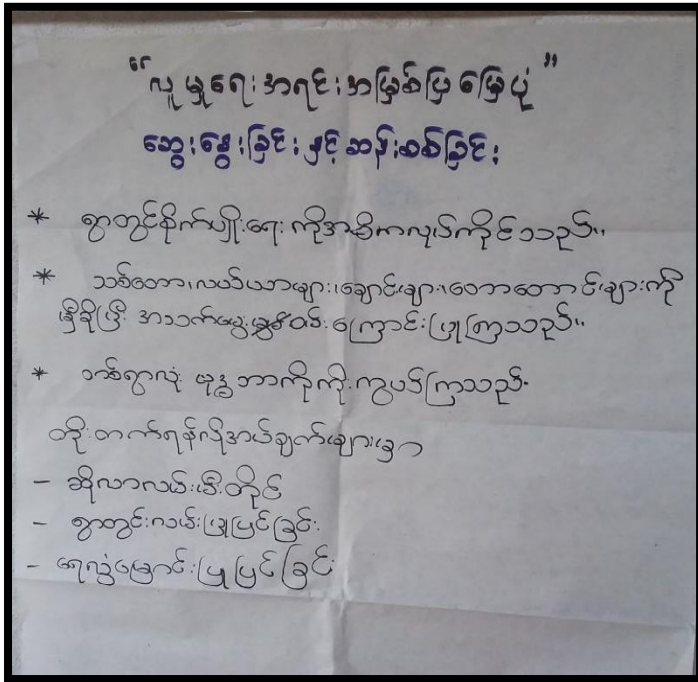 “လူမှုရေးအရင်းအမြစ်ပြမြေပုံ”
ဆွေးနွေးခြင်းနှင့်ဆန်းစစ်ခြင်း
* ရွာတွင်စိုက်ပျိုးရေးကိုအဓိကလုပ်ကိုင်သည်။
* သစ်တော၊လယ်ယာများ၊ချောင်းများ၊တောတောင်များကို
မှီခိုပြီး အသက်မွေးဝမ်းကြောင်းပြုကြသည်။
* တစ်ရွာလုံး ဗုဒ္ဓဘာသာကိုကိုးကွယ်ကြသည်။
တိုးတက်ရန်လိုအပ်ချက်များမှာ
- ဆိုလာလမ်းမီးတိုင်
- ရွာတွင်းလမ်းပြုပြင်ခြင်း
- ရေလွှဲမြောင်းပြုပြင်ခြင်း